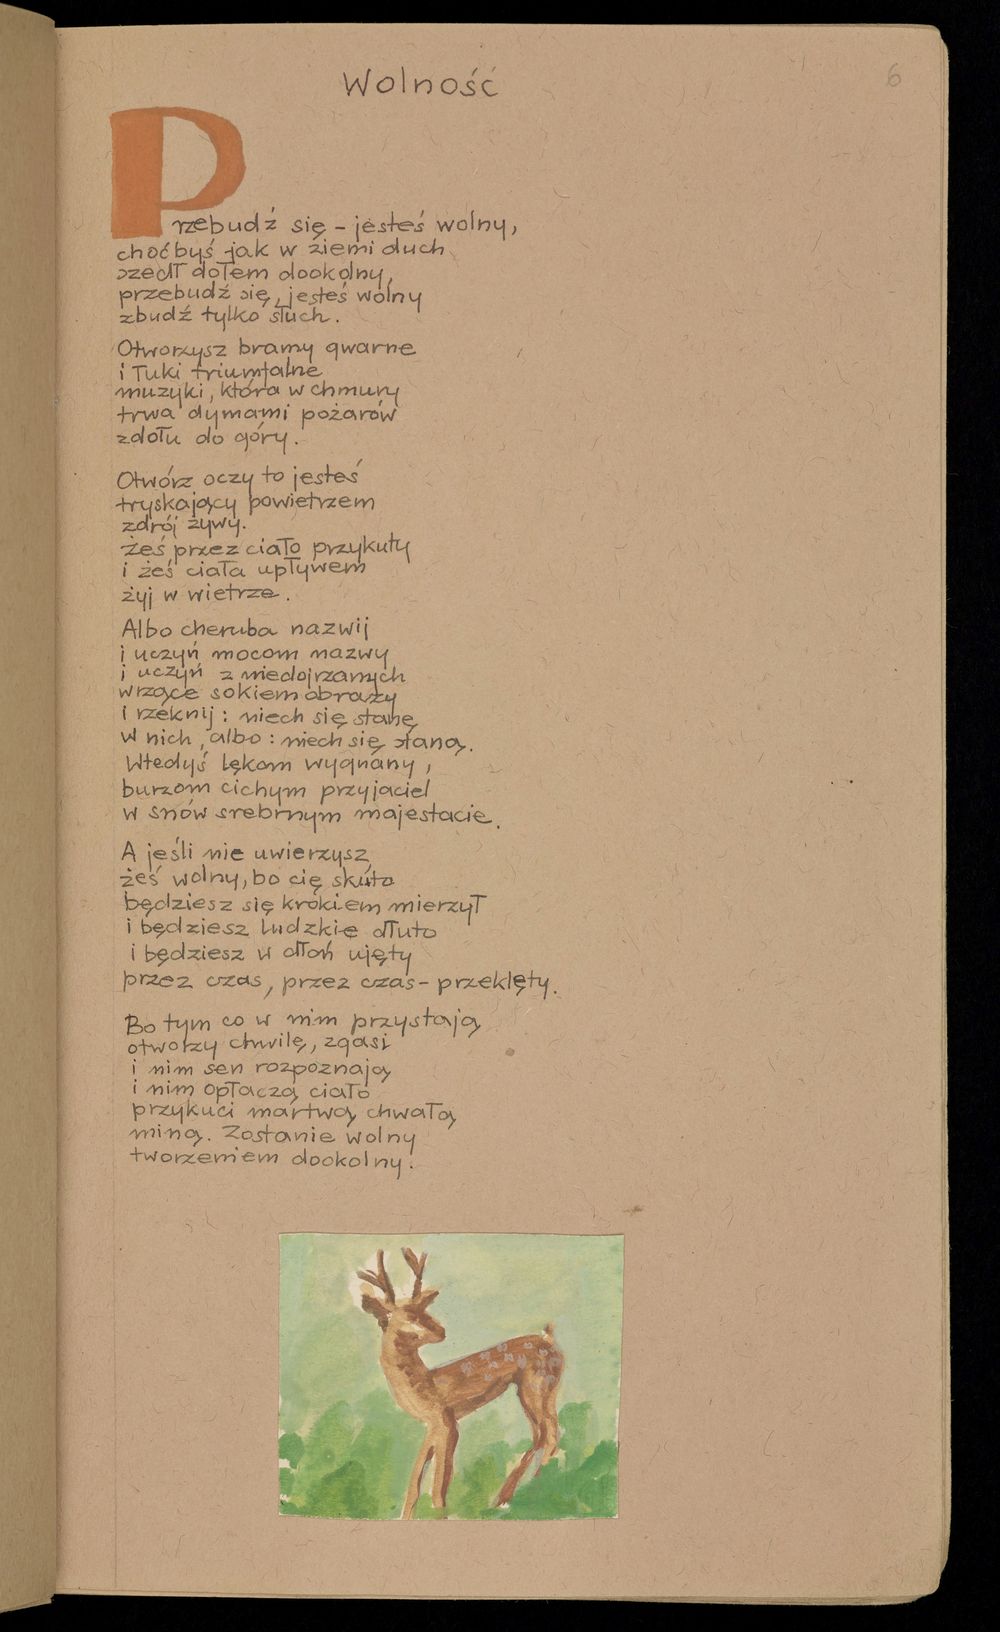 Wolność
6
Przebudź się - jesteś wolny,
choćbyś jak w ziemi duch
szedł dołem dookolny,
przebudź się, jesteś wolny
zbudź tylko słuch.
Otworzysz bramy gwarne
i łuki triumfalne
muzyki, która w chmury
trwa dymami pożarów
zdołu do góry.
Otwórz oczy to jesteś
tryskający powietrzem
zdrój żywy.
Żeś przez ciało przykuty
i żeś ciała upływem
żyj w wietrze.
Albo cheruba nazwij
i uczyń mocom nazwy
i uczyń z niedojrzanych
wrzące sokiem obrazy
i rzeknij: niech się stanę
w nich, albo: niech się staną.
Wtedyś lękom wygnany,
burzom cichym przyjaciel
w snów srebrnym majestacie.
A jeśli nie uwierzysz,
żeś wolny, bo cię skuto
będziesz się krokiem mierzył
i będziesz ludzkie dłuto
i będziesz w dłoń ujęty
przez czas, przez czas - przeklęty.
Bo tym co w nim przystają
otworzy chwilę, zgasi
i nim sen rozpoznają
i nim opłaczą ciało
przykuci martwą chwałą
miną. Zostanie wolny
tworzeniem dookolny.